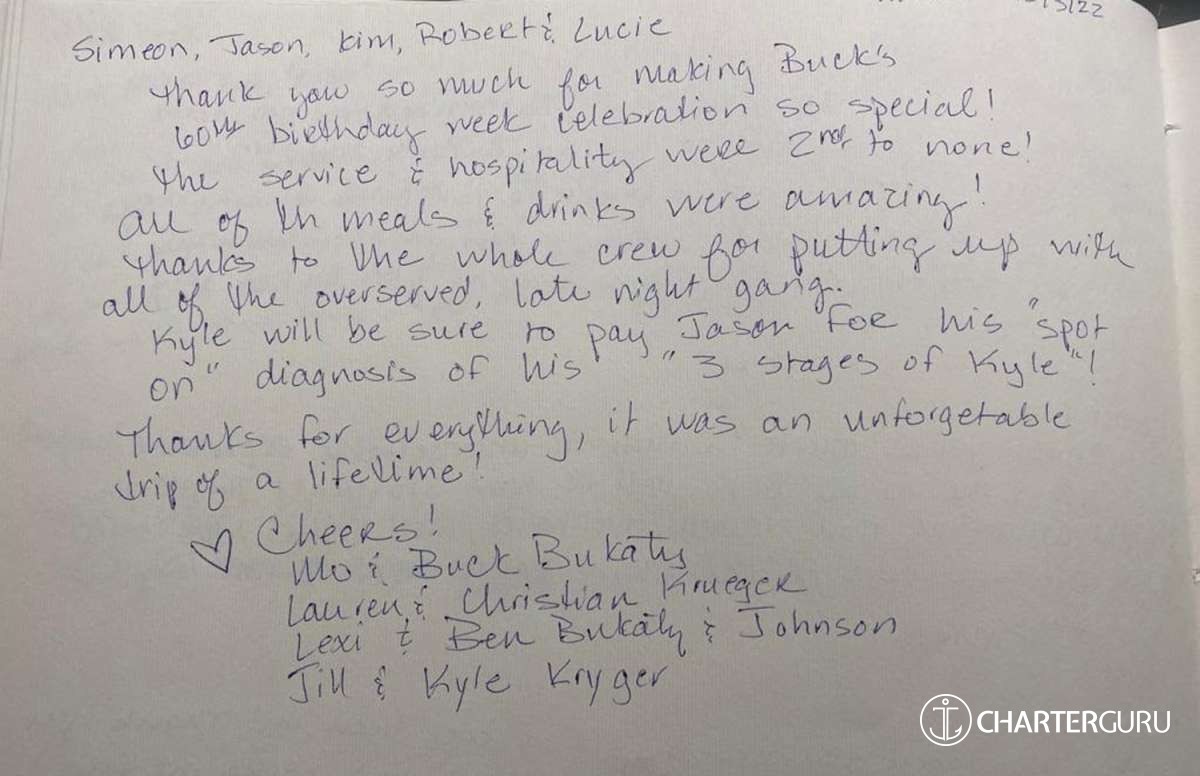 5/22
Simeon, Jason, Kim, Robert & Lucie
Thank you so much for making Buck's
60th birthday week celebration so special!
The service & hospitality were 2nd to none!
All of th meals & drinks were amazing!
Thanks to the whole crew for putting up with
all of the overserved, late night gang.
Kyle will be sure to pay Jason for his "spot
on" diagnosis of his "3 stages of Kyle"!
Thanks for everything, it was an unforgetable
trip of a lifetime!
♡ Cheers!
Mo & Buck Bukaty
Lauren & Christian Krueger
Lexi & Ben Bukaty & Johnson
Jill & Kyle Kryger
CHARTERGURU